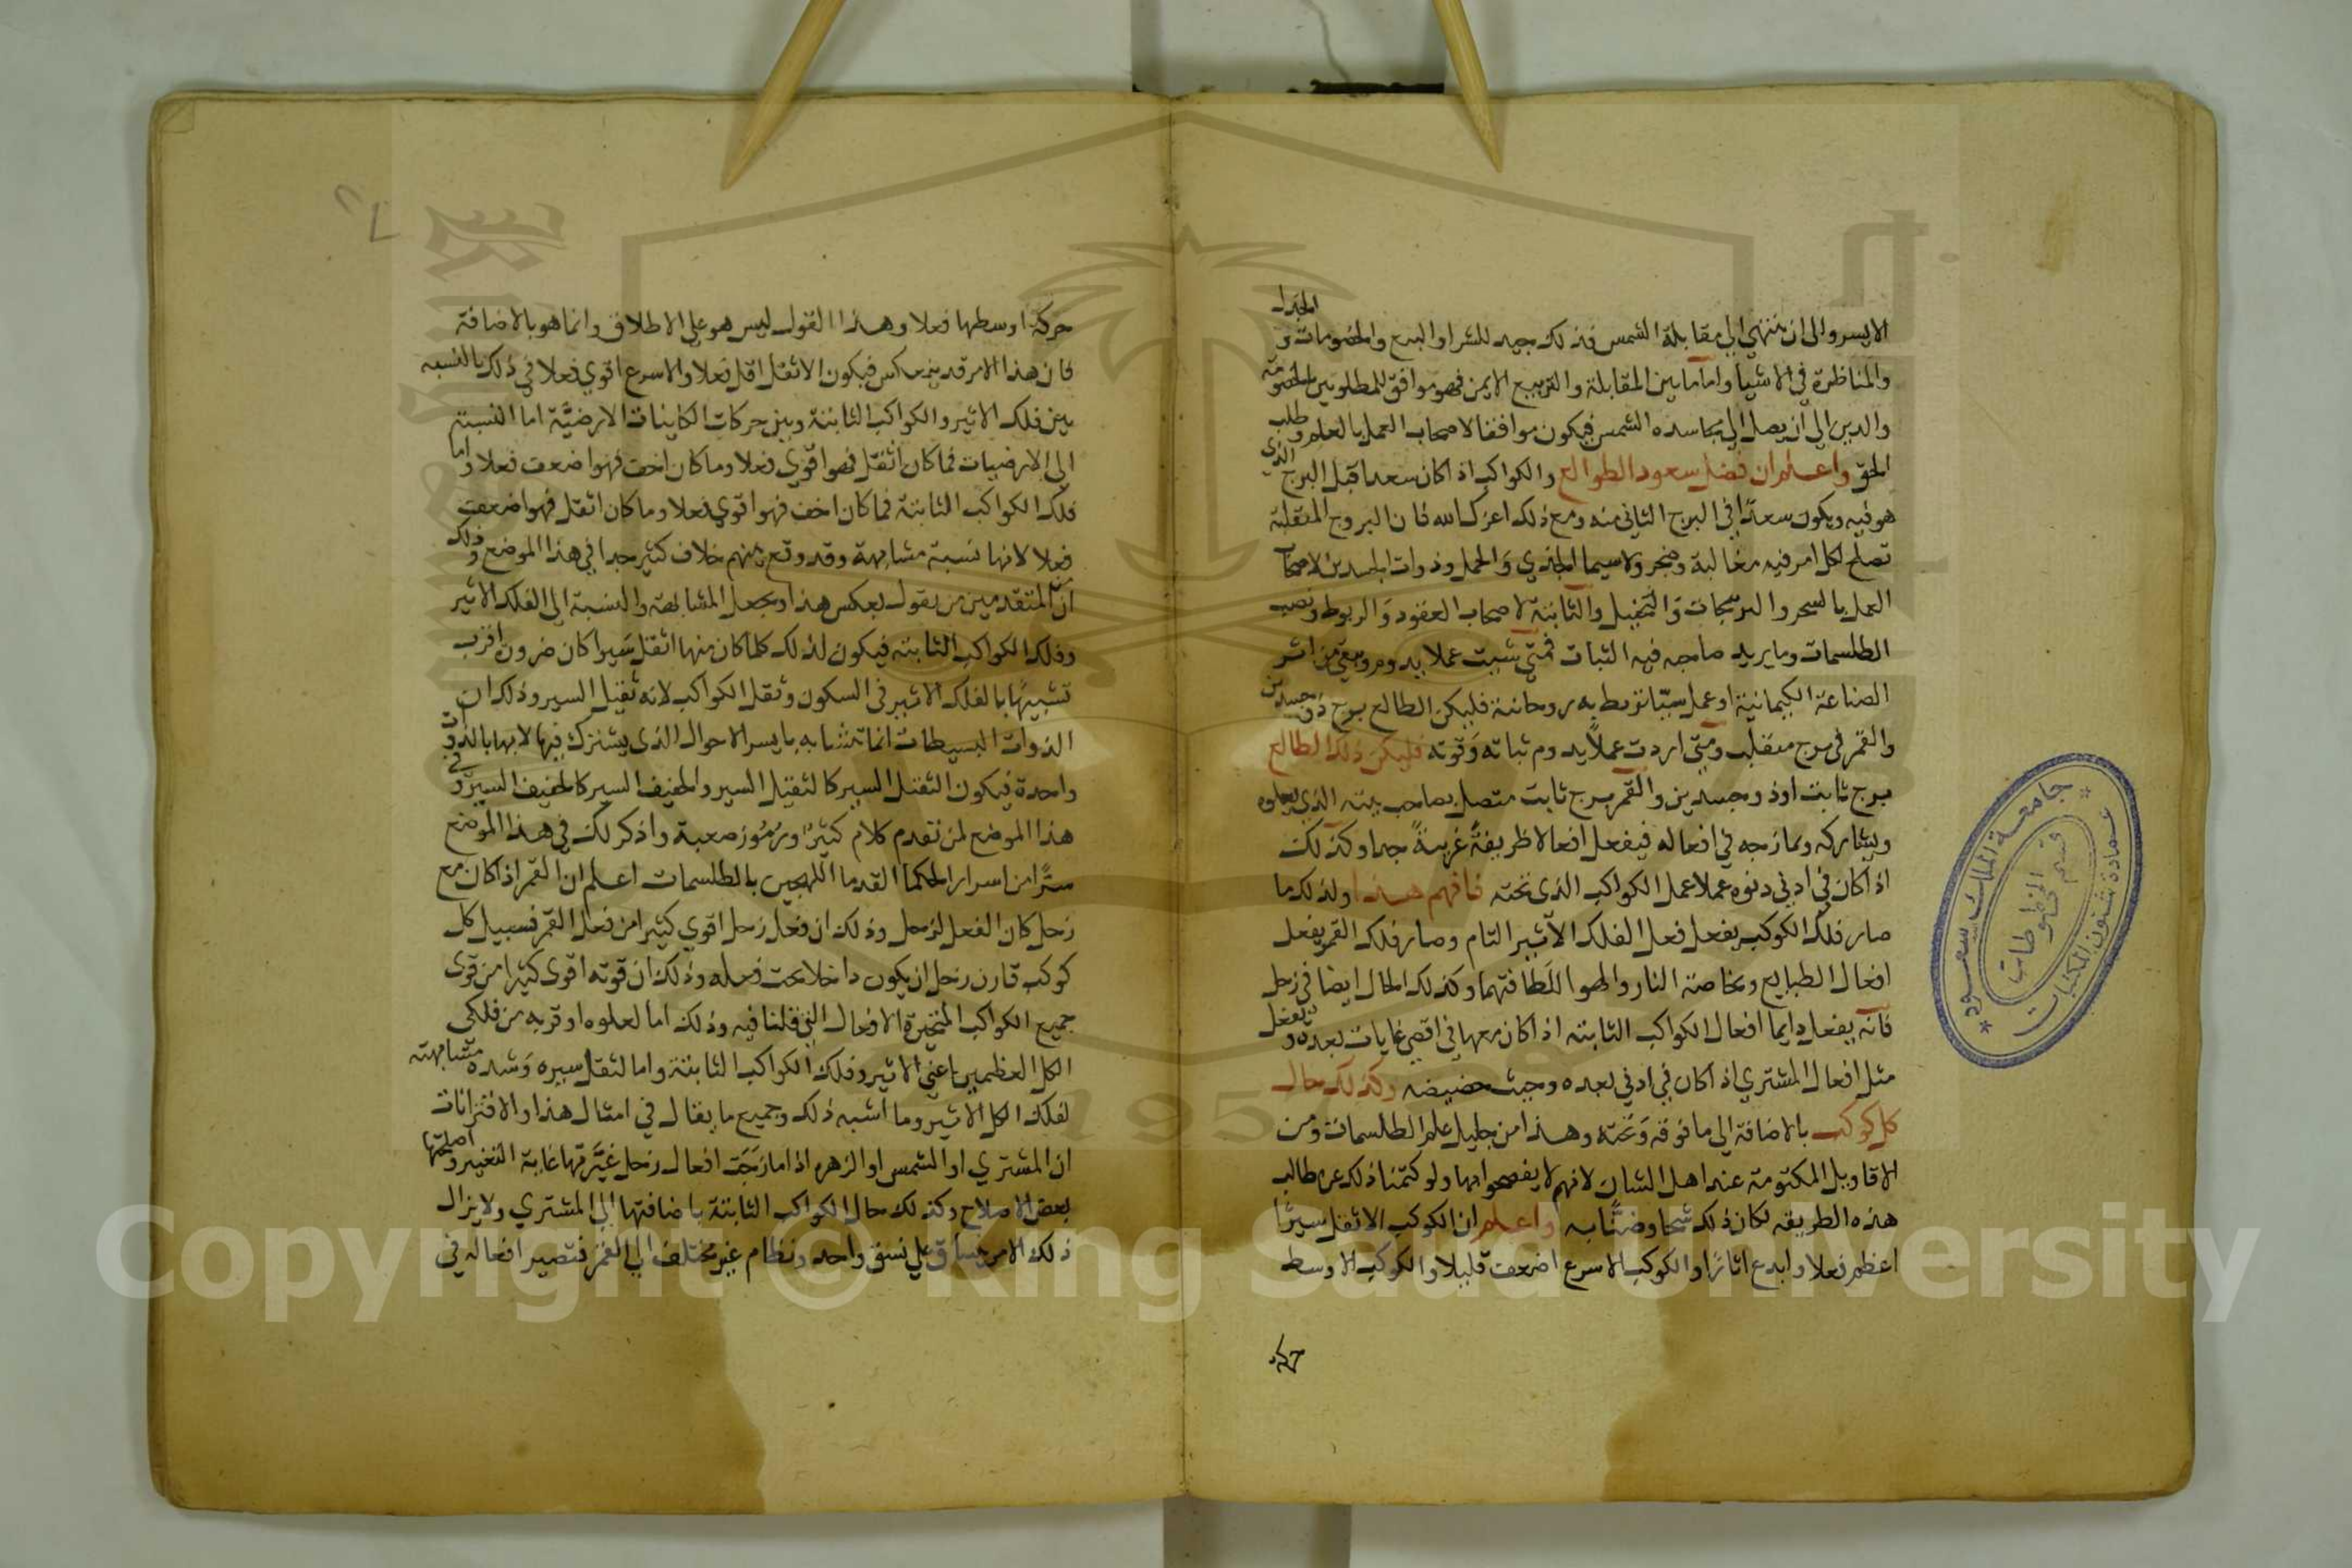 الايسر والى ان ينتهي الى مقابلة الشمس فذلك جيد للشراو البيع والخصومات و الجدل
والمناظرة في الاشيا واما ما بين المقابلة والتربيع الايمن فهو موافق للمطلوبين بالخصومة
والدين الى ان يصل الى مجاسده الشمس فيكون موافقا لاصحاب العمل بالعلم وطلب
الحق واعلم ان فضل سعود الطوالع والكواكب اذا كان سعدا قبل البرج الذي
هو فيه ويكون سعدًا في البرج الثاني منه ومع ذلك اعزك الله فان البروج المنقلبة
تصلح لكل امر فيه مغالبة وضجر ولاسيما الجدي وَالحمل وذوات الجسدين لاصحاب
العمل بالسحر والنيرنجات وَالتخييل والثابتة لاصحاب العقود وَالربوط ونصب
الطلسمات وما يريد صاحبه فيه الثبات فمتى شيت عملا يدوم ويبقى من اثر
الصناعة الكيمانية او عمل سببًا تربط به روحانية فليكن الطالع برج ذي جسدين
والقمر في برج منقلب ومتى اردت عملاً يدوم ثباته وَقوته فليكن ذلك الطالع
برج ثابت او ذو جسدين والقمر ببرج ثابت متصل بصاحب بيته الذي يعلوه
ويشاركه ويمازجه في افعاله فيفعل افعالا ظريفةً غريبةً جدا وكذلك
اذا كان في ادنى دنوه عملا عمل الكواكب الذى تحته فافهم هذا ولذلك ما
صار فلك الكوكب يفعل فعل الفلك الاثير التام وصار فلك القمر يفعل
افعال الطبايع وبخاصة النار والهوا للَطافتهما وكذلك الحال ايضا في زحل
فانه يفعل دايما افعال الكواكب الثابته اذا كان معها في اقصى غايات بعده ويفعل
مثل افعال المشتري اذا كان في ادنى بعده وحيث حضيضه وكذلك حال
كل كوكب بالاضافة الى ما فوقه وَتحته وهذا من جليل علم الطلسمات ومن
الاقاويل المكتومة عند اهل الشان لانهم لا يفصحوا بها ولو كتمنا ذلك عن طالب
هذه الطريقه لكان ذلك شحا وضنًّا به واعلم ان الكوكب الاثقل سيرًا
اعظم فعلا وابدع اثارًا والكوكب الاسرع اضعف قليلا والكوكب الاوسط
حركة
حركة اوسطها فعلا وهذا القول ليس هو على الاطلاق وانما هو بالاضافة
فان هذا الامر قد ينعكس فيكون الاثقل اقل فعلا والاسرع اقوي فعلا في ذلك بالنسبه
بين فلك الاثير والكواكب الثابتة وبين حركات الكاينات الارضيَّة اما النسبة
الى الارضيات فما كان اثقل فهو اقوي فعلا وما كان اخف فهو اضعف فعلا واما
فلك الكواكب الثابتة فما كان اخف فهو اقوي فعلا وما كان اثقل فهو اضعف
فعلا لانها نسبة مشابهة وقد وقع بينهم خلاف كثير جدا في هذا الموضع وذلك
ان من المتقدمين من يقول بعكس هذا ويجعل المشابهة والنسبة الى الفلك الاثير
وفلك الكواكب الثابته فيكون لذلك كلما كان منها اثقل سَيرا كان ضرون اقرب
تشبيهًا بالفلك الاثير في السكون وثقل الكواكب لانه ثقيل السير وذلك ان
الذوات البسيطات انما تتشابه بايسر الاحوال الذى يشترك فيها لانها بالذات
واحدة فيكون الثقيل السير كالثقيل السير والخفيف السير كالخفيف السير وفي
هذا الموضع لمن تقدم كلام كثير ورُمُوز صعبة واذكر لك في هذا الموضع
سرًّا من اسرار الحكما القدما اللهجين بالطلسمات اعلم ان القمر اذا كان مع
زحل كان الفعل لزحل وذلك ان فعل زحل اقوي كثيرا من فعل القمر فسبيل كل
كوكب قارن زحل ان يكون داخلا تحت فعله وذلك ان قوته اقوى كثيرا من قوى
جميع الكواكب المتحيرة الافعال التي قلنا فيه وذلك اما لعلوه او قربه من فلكي
الكل العظمين اعني الاثير وفلك الكواكب الثابتة واما لثقل سيره وَشده مشابهته
لفلك الكل الاثير وما اشبه ذلك وجميع ما يقال في امثال هذا والاقترانات
ان المشتري او الشمس او الزهره اذا مازجَت افعال زحل غيَّرتها غاية التغيير واصلحتها
بعض الاصلاح وكذلك حال الكواكب الثابتة باضافتها الى المشتري ولا يزال
ذلك الامر ينساق على نسق واحد ونظام غير مختلف الى القمر فتصير افعاله في
جامعة الملك سعود
عمادة شئون المكتبات
قسم المخطوطات
1957
Copyright © King Saud University